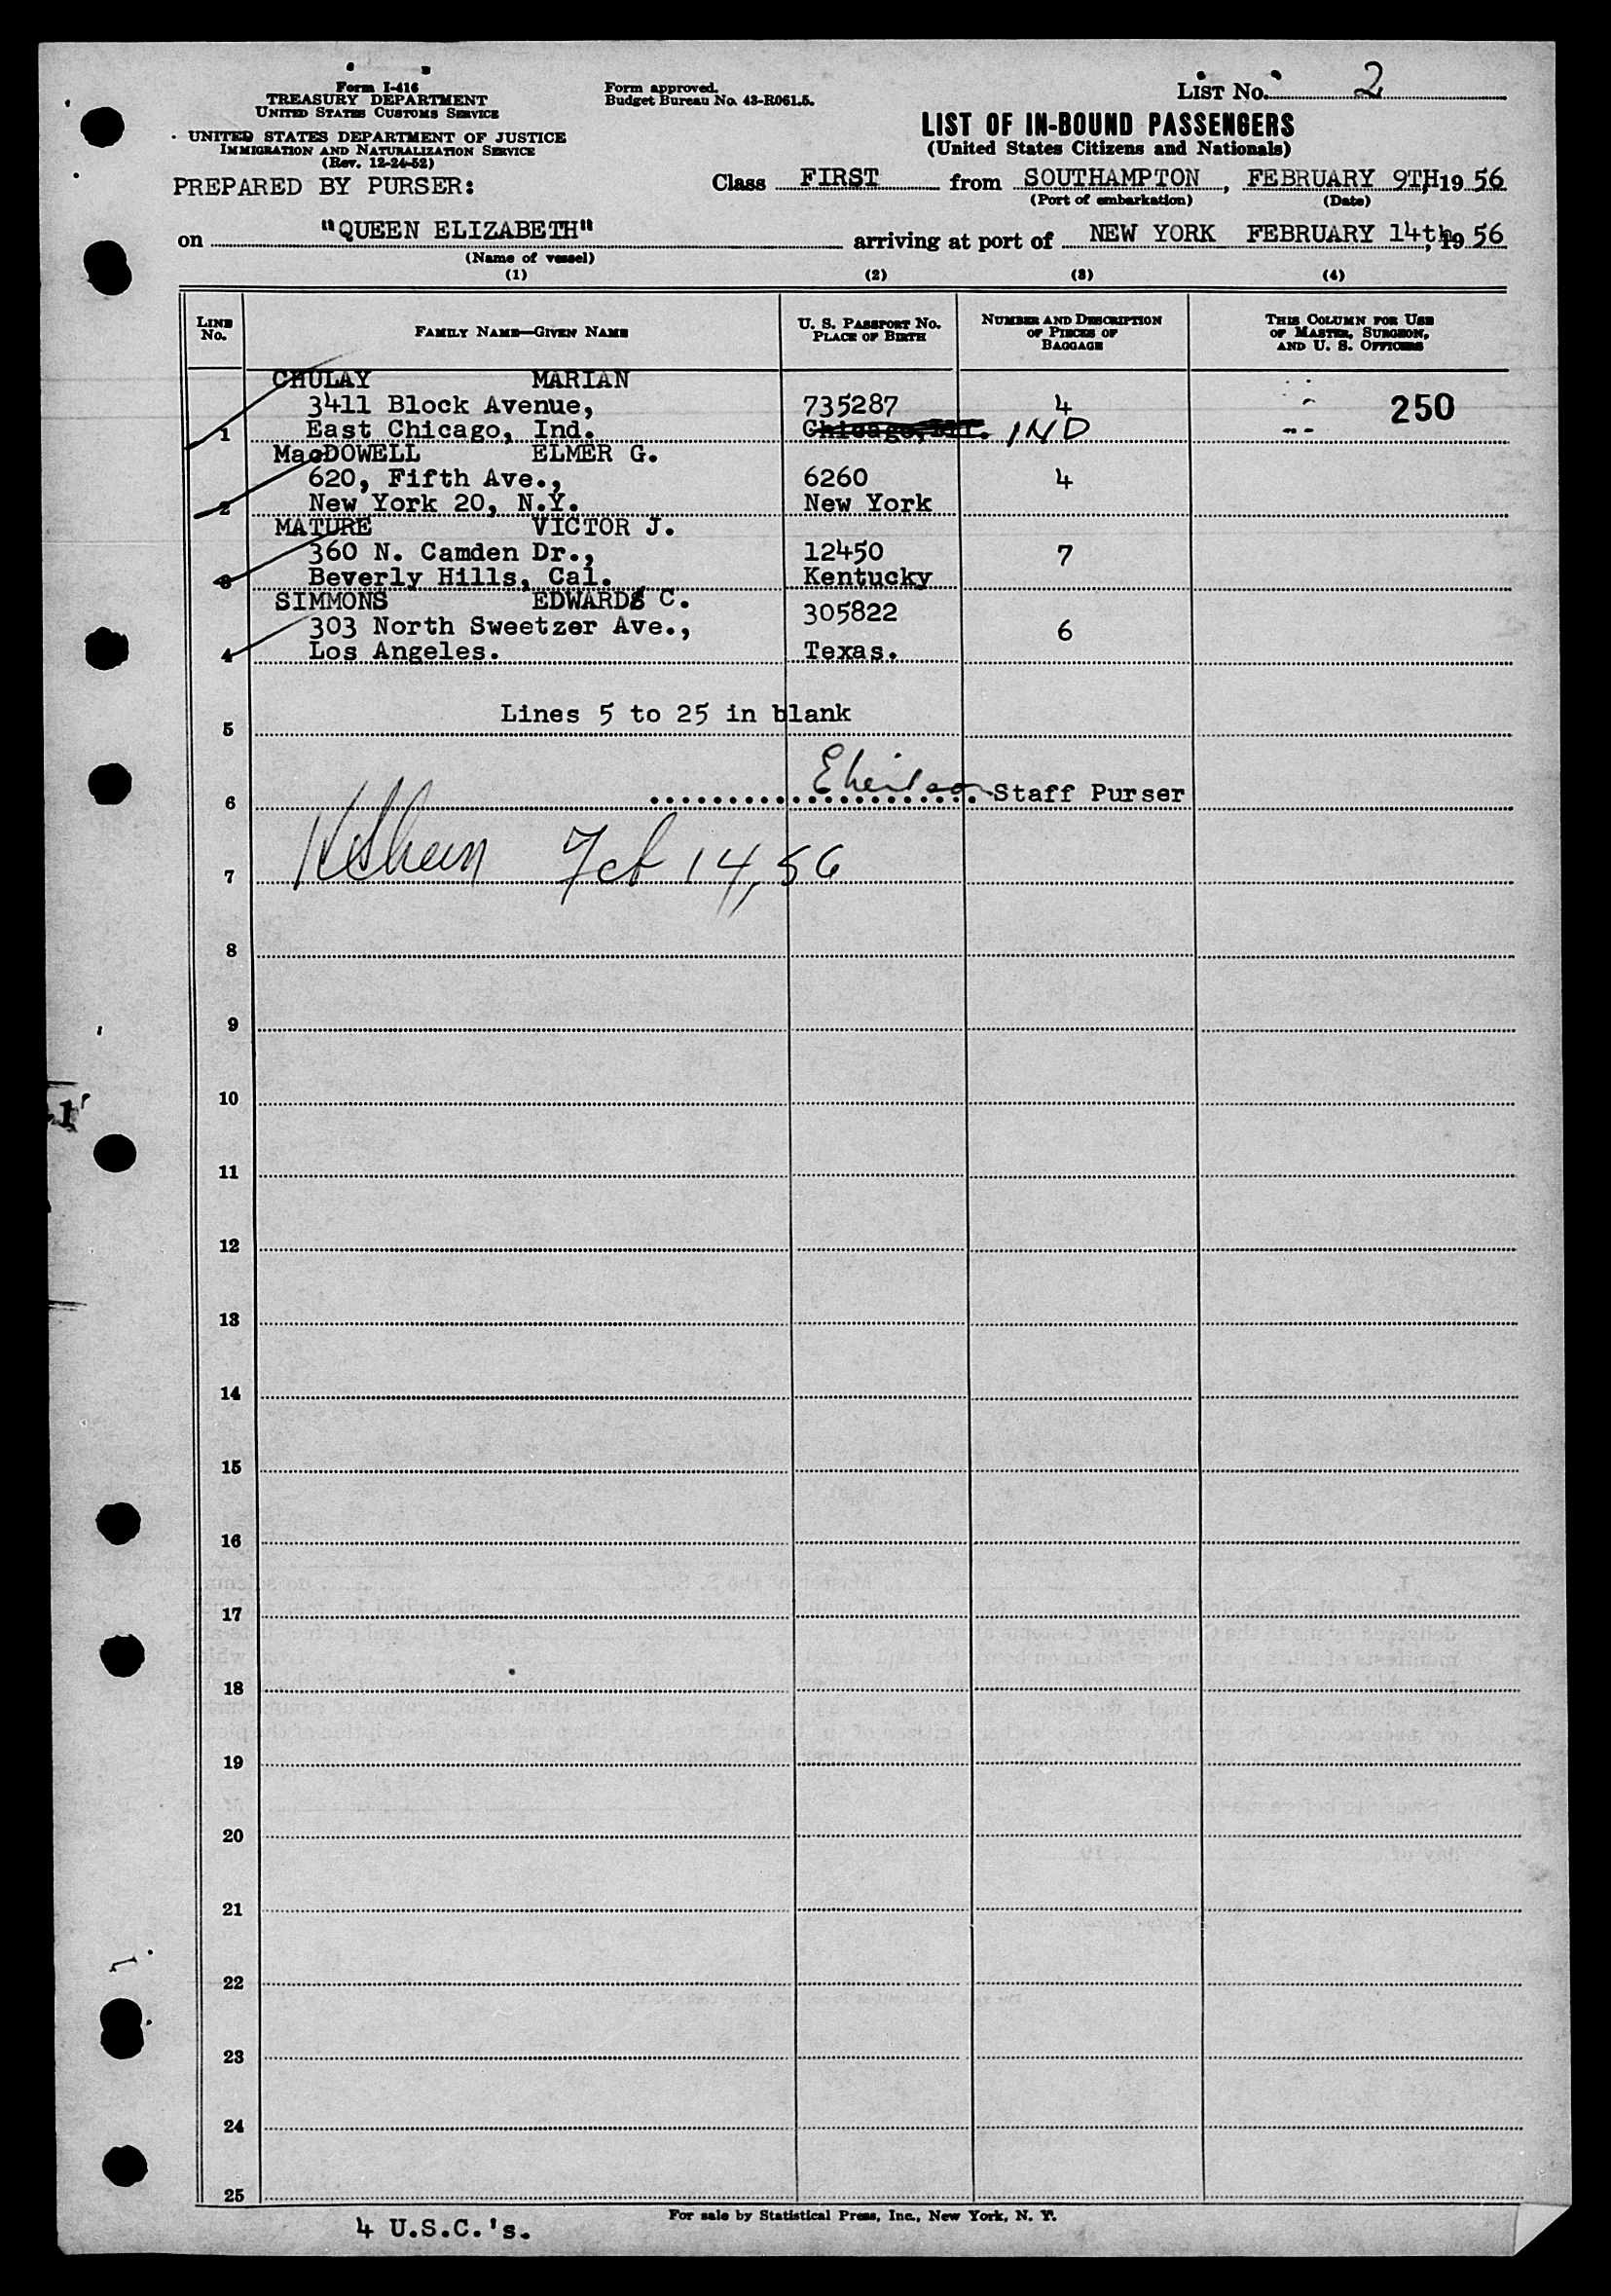 Form I-416
TREASURY DEPARTMENT
UNITED STATES CUSTOMS SERVICE
UNITED STATES DEPARTMENT OF JUSTICE
IMMIGRATION AND NATURALIZATION SERVICE
(Rev. 12-24-52)
Form approved.
Budget Bureau No. 43-R061.5.
LIST No. 2
LIST OF IN-BOUND PASSENGERS
(United States Citizens and Nationals)
PREPARED BY PURSER:
Class FIRST from SOUTHAMPTON, FEBRUARY 9TH, 19 56
(Port of embarkation) (Date)
on "QUEEN ELIZABETH" arriving at port of NEW YORK FEBRUARY 14th, 19 56
(Name of vessel)
(1) (2) (3) (4)
LINE No.
FAMILY NAME—GIVEN NAME
U. S. PASSPORT No.
PLACE OF BIRTH
NUMBER AND DESCRIPTION
OF PIECES OF
BAGGAGE
THIS COLUMN FOR USE
OF MASTER, SURGEON,
AND U. S. OFFICERS
CHULAY MARIAN
3411 Block Avenue, 735287 4 250
1 East Chicago, Ind. IND
MacDOWELL ELMER G.
620, Fifth Ave., 6260 4
2 New York 20, N.Y. New York
MATURE VICTOR J.
360 N. Camden Dr., 12450 7
3 Beverly Hills, Cal. Kentucky
SIMMONS EDWARD C.
303 North Sweetzer Ave., 305822 6
4 Los Angeles. Texas.
Lines 5 to 25 in blank
5
6 Staff Purser
7 Feb 14, 56
8
9
10
11
12
13
14
15
16
17
18
19
20
21
22
23
24
25
For sale by Statistical Press, Inc., New York, N. Y.
4 U.S.C.'s.